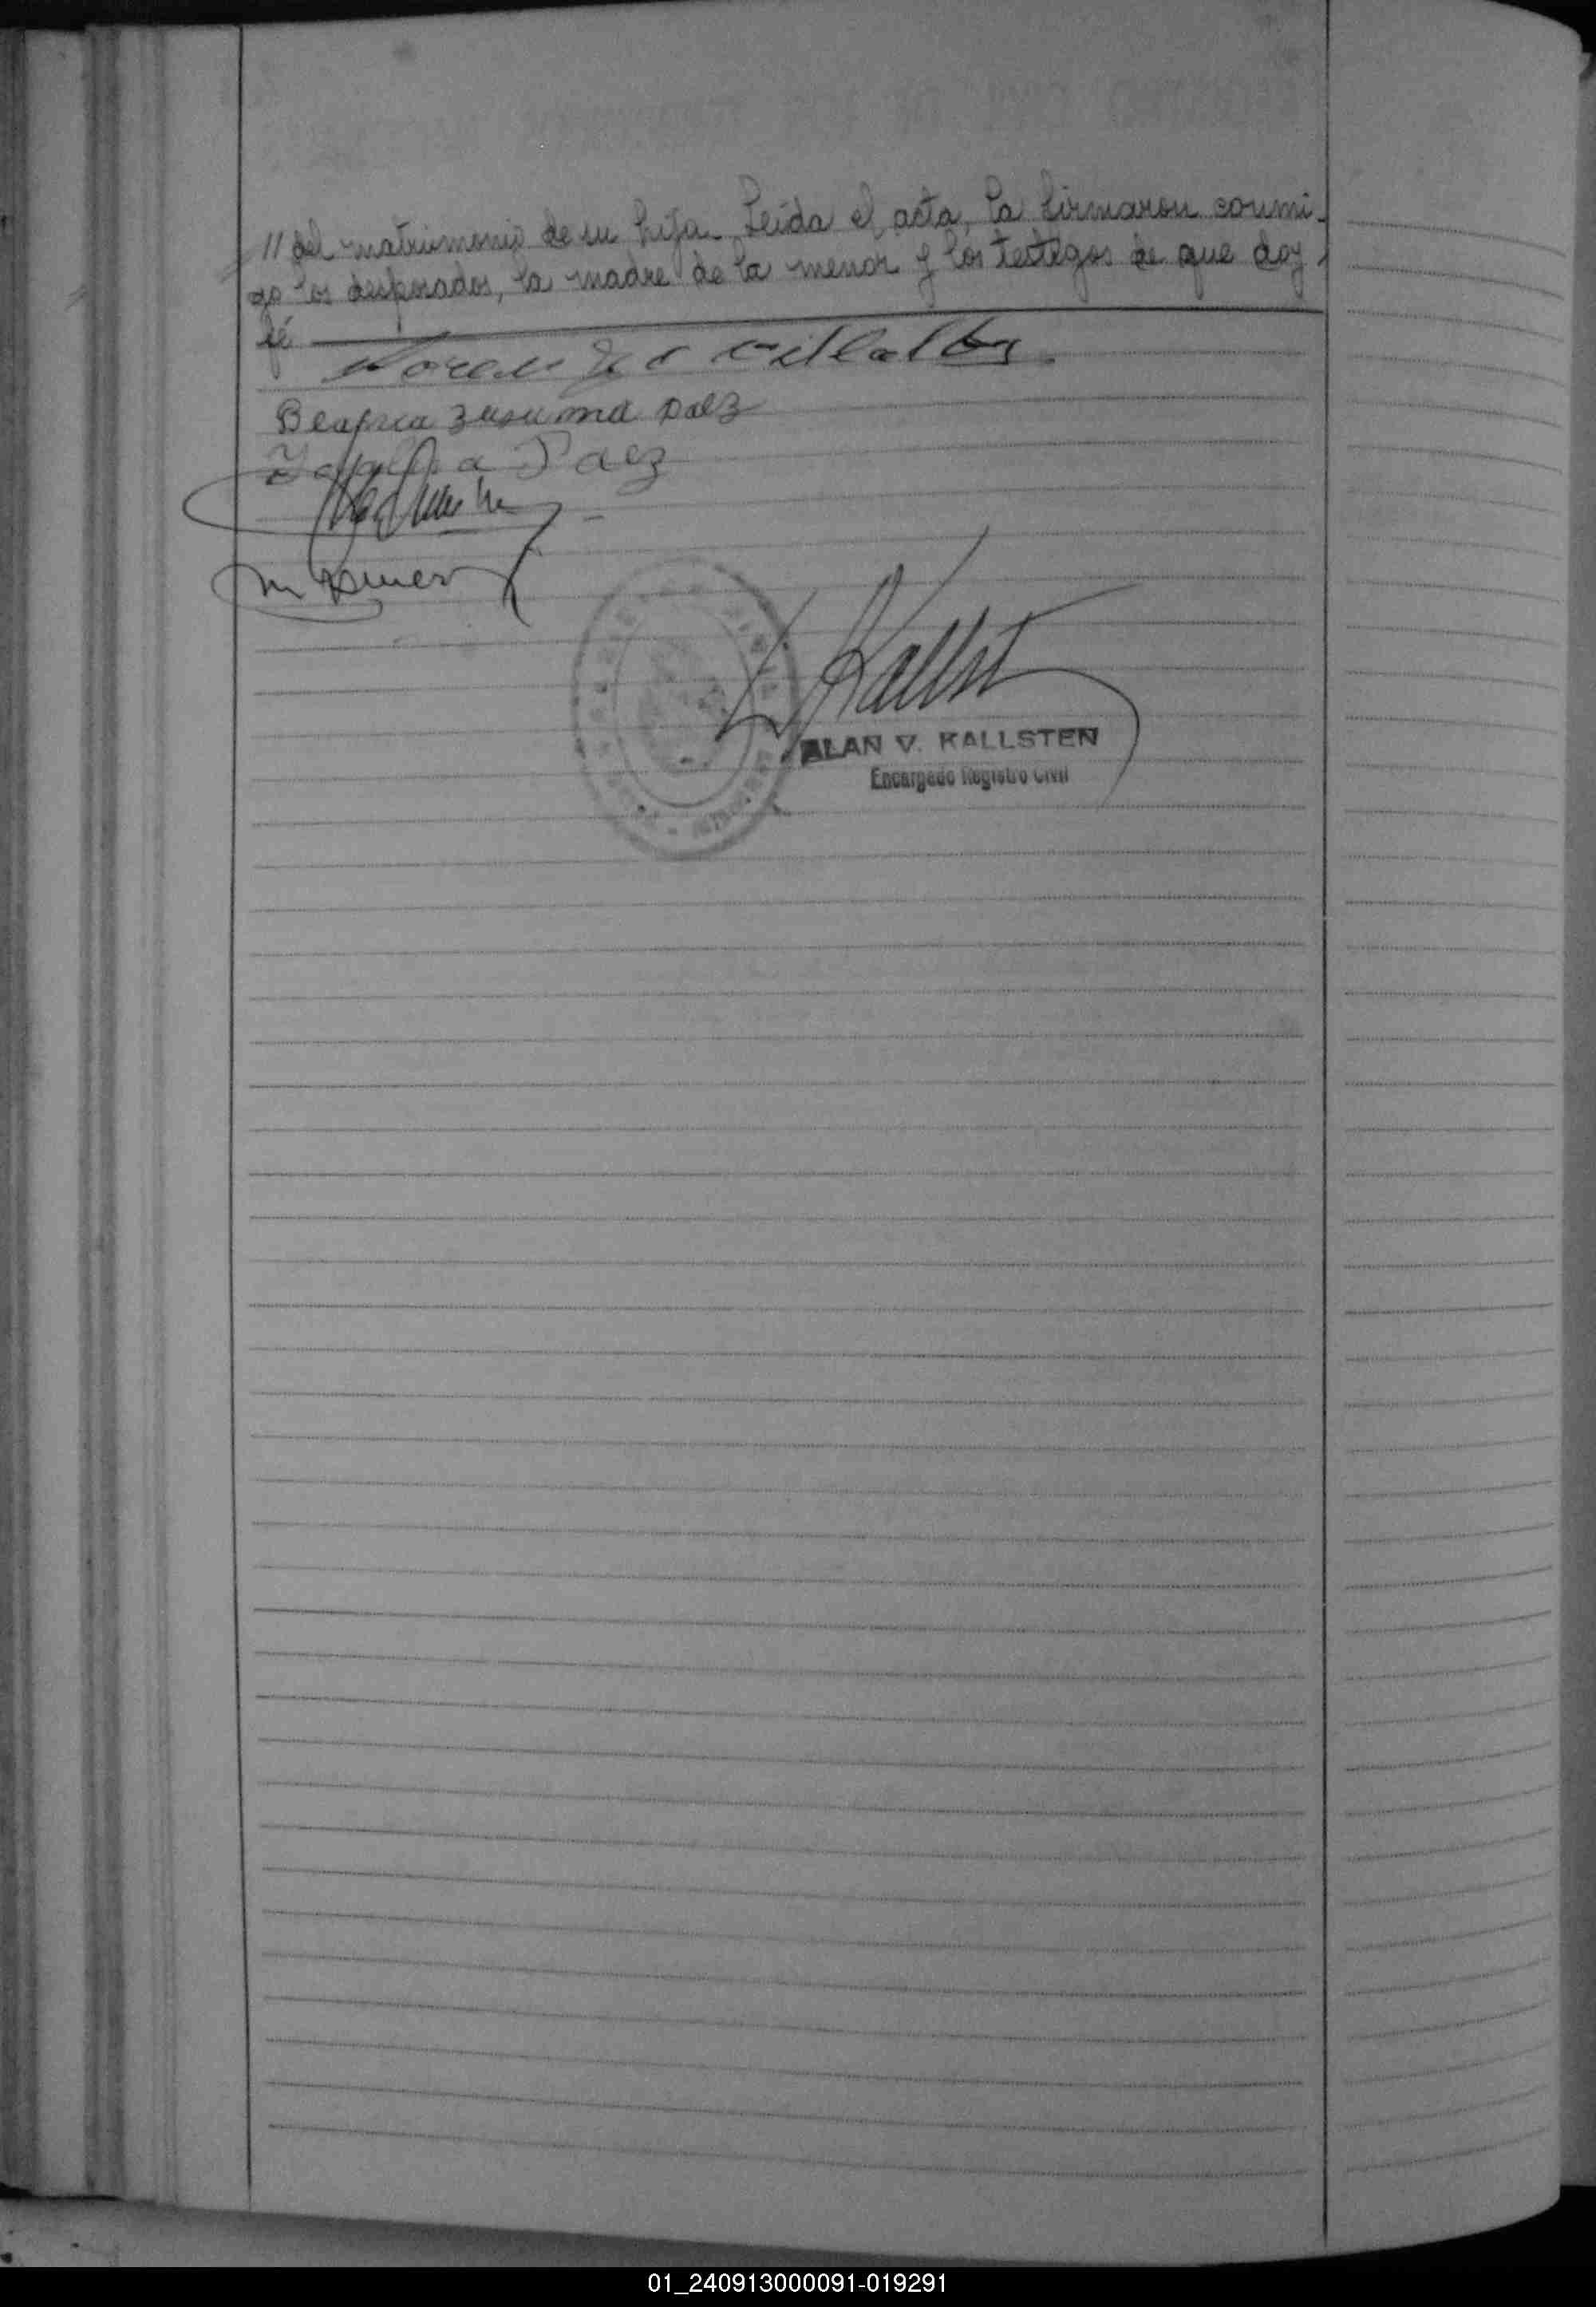 // del matrimonio de su hija. Leída el acta, la firmaron conmi-
go los desposados, la madre de la menor y los testigos de que doy
fé
Lorenzo Villalba
Beatriz Zusuma Paez
Paez
ALAN V. KALLSTEN
Encargado Registro Civil
01_240913000091-019291